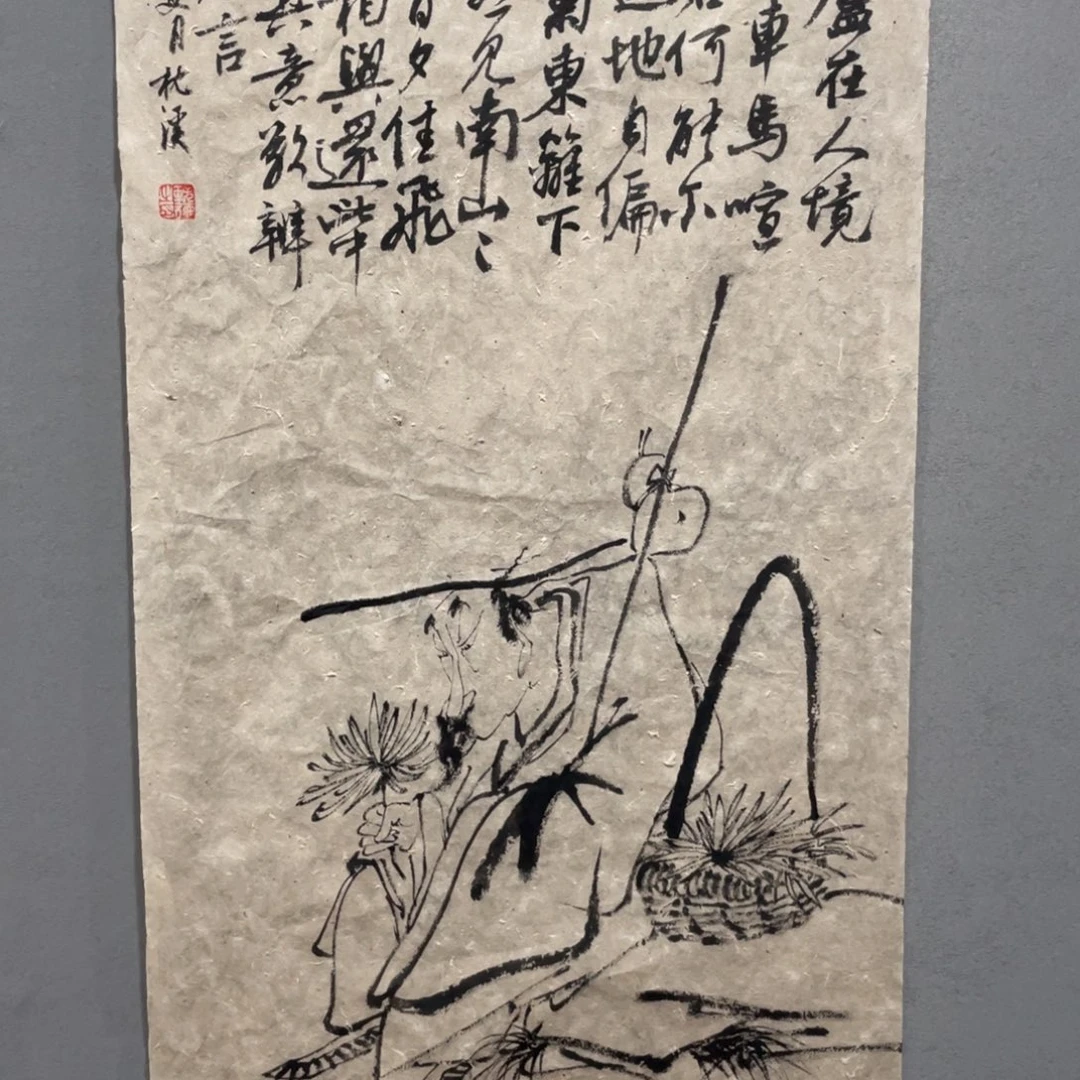 廬在人境
車馬喧
何能尔
地自偏
菊東籬下
见南山
日夕佳飛
相與還此中
真意欲辨
言
月
溪